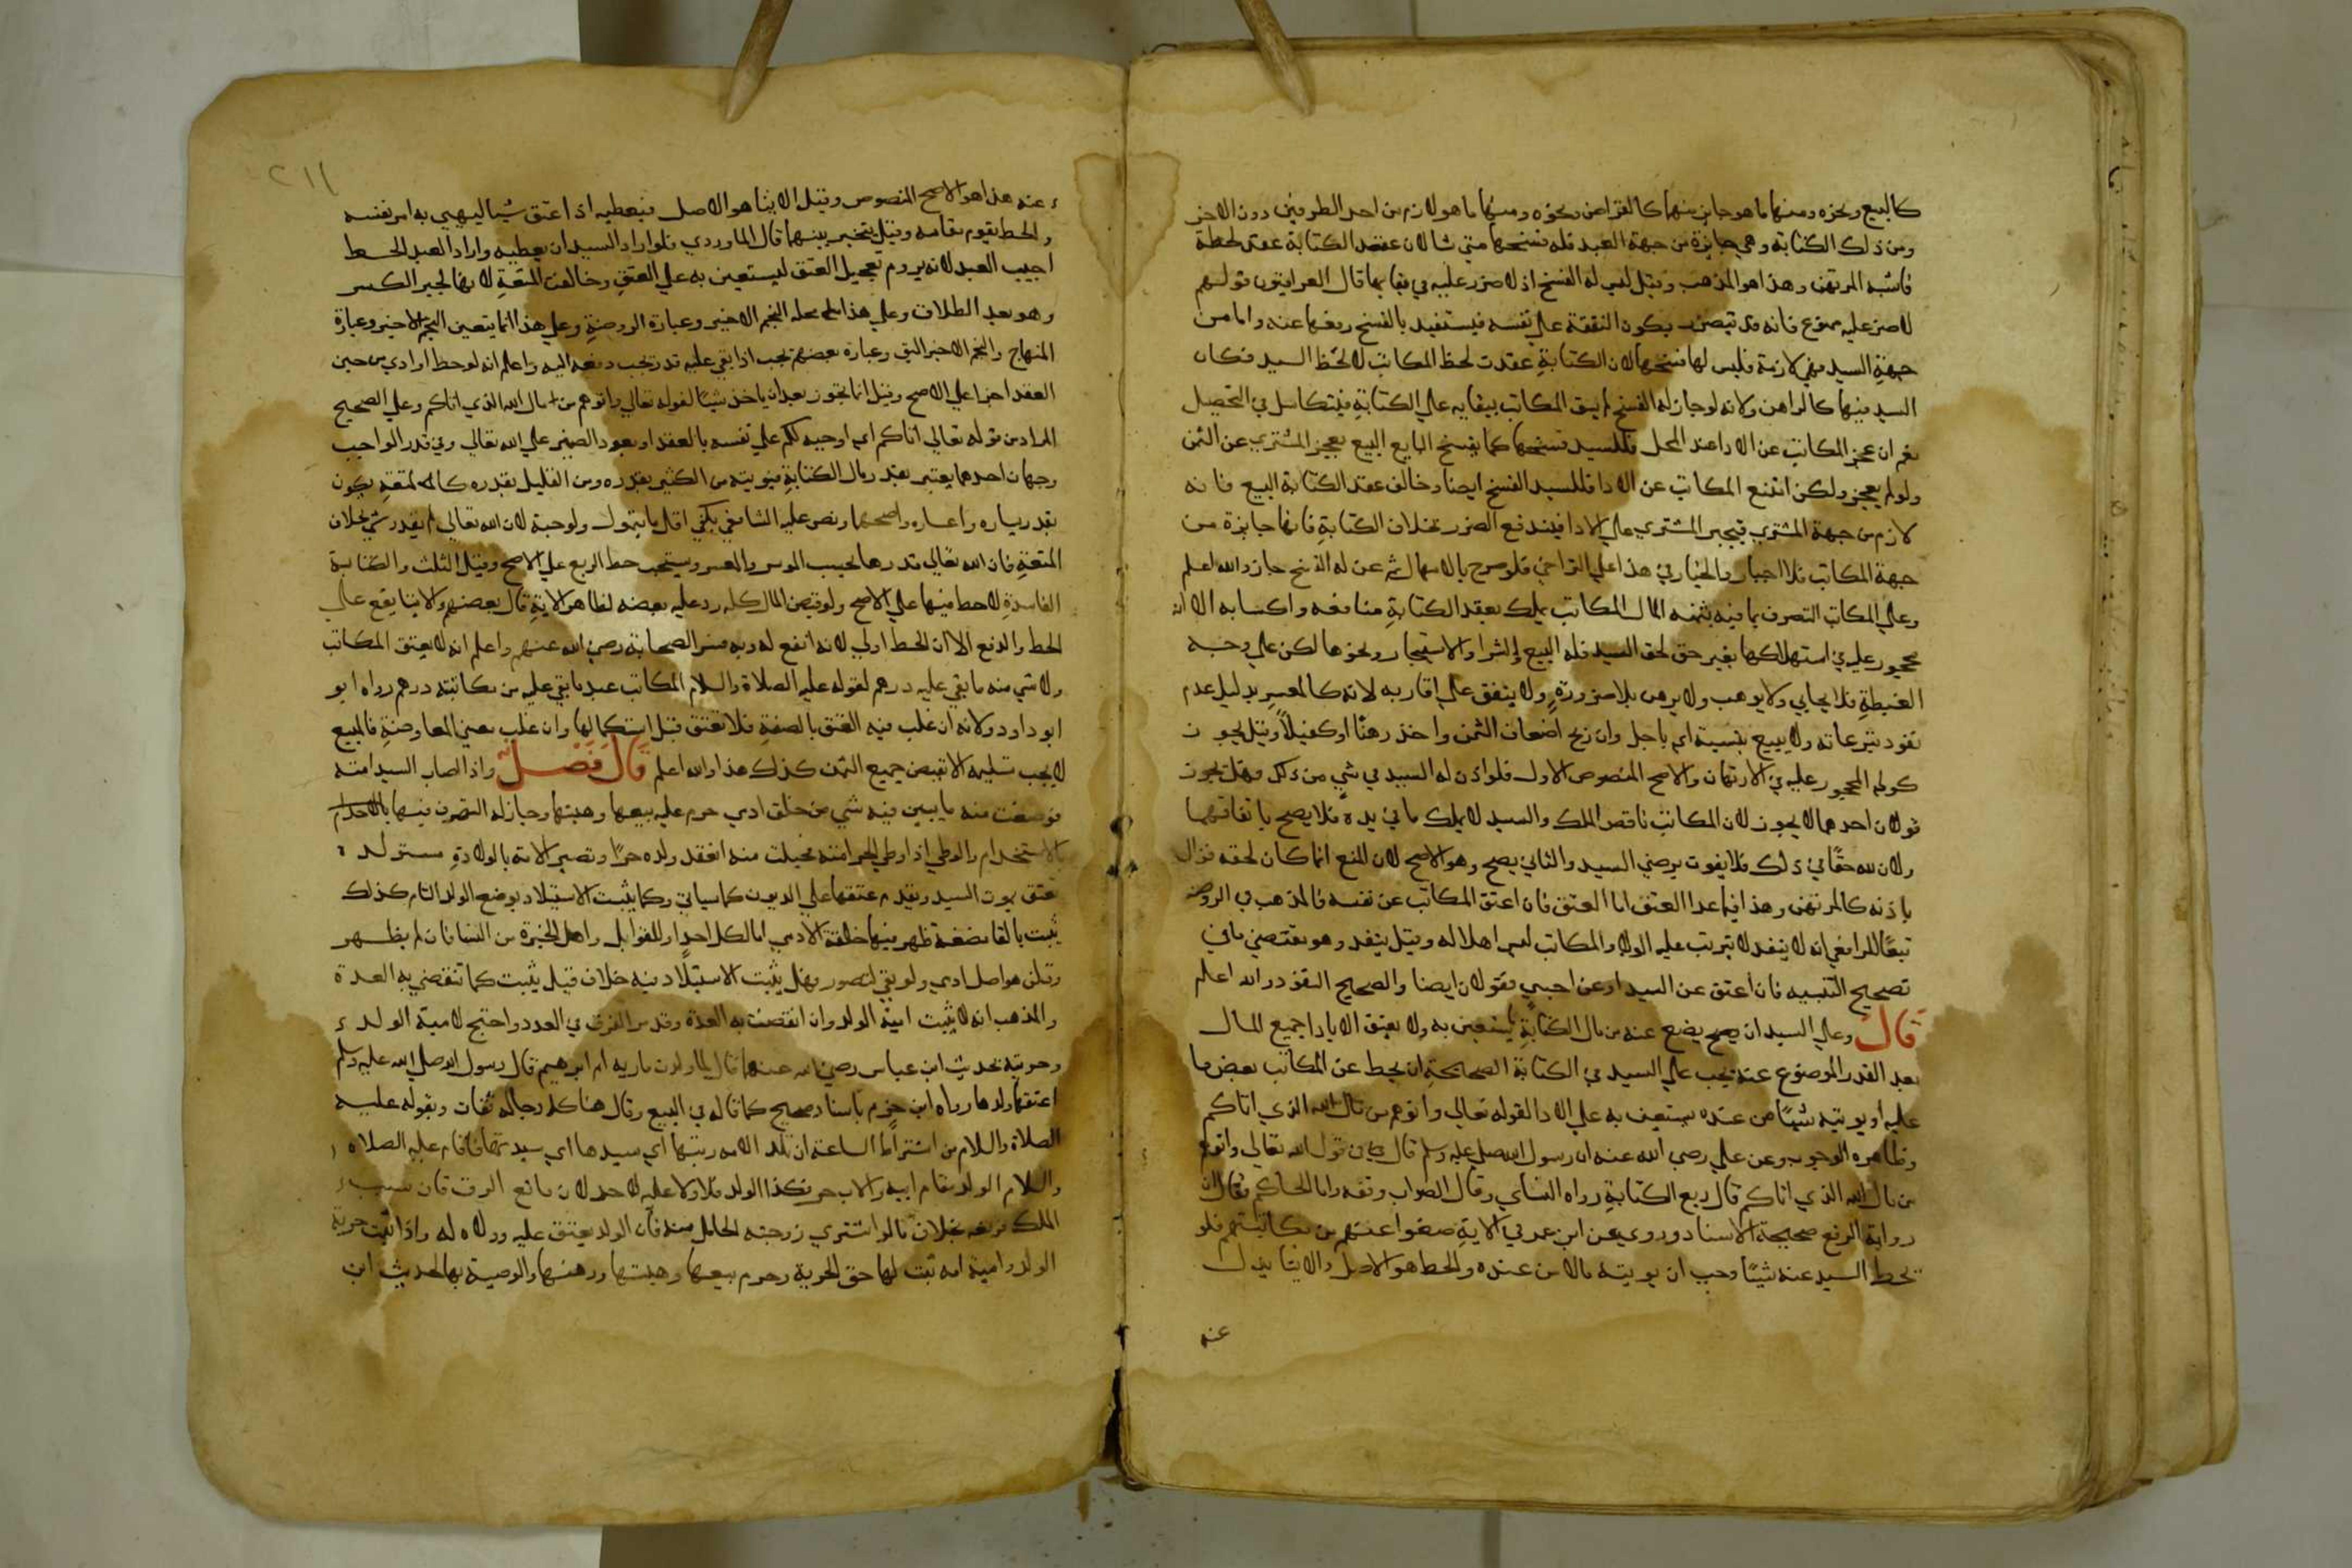 كالبيع ونحوه ومنها ما هو جايز منها كالقراض ونحوه ومنها ما هو لازم من احد الطرفين دون الاخر
ومن ذلك الكتابة وهي جايزة من جهة العبد فله فسخها متي شا لان عقد الكتابة عقد لحظه
فاشبه المرتهن وهذا هو المذهب وقيل ليس له الفسخ اذ لا ضرر عليه في بقايها قال العراقيون قولهم
لا ضرر عليه ممنوع فانه قد تبصر يكون النفقة علي نفسه فيستفيد بالفسخ رفعها عنه واما من
جهة السيد فهي لازمة فليس لها فسخها لان الكتابة عقدت لحظ المكاتب لا لحظ السيد فكان
السيد فيها كالراهن ولانه لو جاز له الفسخ لم يثق المكاتب ببقايه علي الكتابة فيتكاسل في التحصيل
نعم ان عجز المكاتب عن الادا عند المحل فللسيد فسخها كما يفسخ البايع البيع بعجز المشتري عن الثمن
ولو لم يعجز ولكن امتنع المكاتب عن الادا فللسيد الفسخ ايضا وخالف عقد الكتابة البيع فانه
لازم من جهة المشتري فيجبر المشتري علي الادا فيندفع الضرر بخلاف الكتابة فانها جايزة من
جهة المكاتب فلا اجبار والخيار في هذا علي التراخي فلو صرح بالامهال ثم عن له الفسخ جاز والله اعلم
وعلي المكاتب التصرف بما فيه بثمنه المال المكاتب يملك بعقد الكتابة منافعه واكسابه الا انه
محجور عليه في استهلاكها بغير حق لحق السيد فله البيع والشرا والاستيجار ونحوها لكن علي وجه
الغبطة فلا يحابي ولا يوهب ولا يرهن بلا ضرورة ولا ينفق علي اقاربه لانه كالمعسر بدليل عدم
نفوذ تبرعاته ولا يبيع بنسية اي باجل وان ربح اضعاف الثمن واخذ رهنًا او كفيلاً وقيل يجوز
كولي المحجور عليه في الارتهان والاصح المنصوص الاول فلو اذن له السيد في شي من ذلك فهل يجوز
قولان احدهما لا يجوز لان المكاتب ناقص الملك والسيد لا يملك ما في يده فلا يصح باتفاقهما
ولان لله حقًا في ذلك فلا يفوت برضي السيد والثاني يصح وهو الاصح لان المنع انما كان لحقه فزال
باذنه كالمرتهن وهذا فيما عدا العتق اما العتق فان اعتق المكاتب عن نفسه فالمذهب في الروضة
تبعًا للرافعي انه لا ينفذ لا ترتب عليه الولا والمكاتب ليس اهلا له وقيل ينفذ وهو مقتضي ما في
تصحيح التنبيه فان اعتق عن السيد او عن اجنبي فقولان ايضا والصحيح النفوذ والله اعلم
قال وعلي السيد ان يضع عنه من مال الكتابة ليستعين به ولا يعتق الا بادا جميع المال
بعد القدر الموضوع عنه يجب علي السيد في الكتابة الصحيحة ان يحط عن المكاتب بعض ما
عليه او يوتيه شيًا من عنده يستعين به علي الادا لقوله تعالي واتوهم من مال الله الذي اتاكم
وظاهره الوجوب وعن علي رضي الله عنه ان رسول الله صلي عليه وسلم قال في قول الله تعالي واتوهم
من مال الله الذي اتاكم قال ربع الكتابة رواه النساي وقال الصواب وقفه واما الحاكم فقال ان
رواية الرفع صحيحة الاسناد وروي عن ابن عمر في الاية ضعوا عنهم من مكاتبتهم فلو
يحط السيد عنه شيًا وجب ان يوتيه مالا من عنده والحط هو الاصل والايتا بدل
عنه
٢١١
عنه هذا هو الاصح المنصوص وقيل الايتا هو الاصل فيعطيه اذا عتق شيا ليهيي به امر نفسه
والحط يقوم مقامه وقيل يتخير بينهما قال الماوردي فلو اراد السيد ان يعطيه واراد العبد الحط
اجيب العبد لانه يروم تعجيل العتق ليستعين به علي العتق وخالفت المتعة لانها لجبر الكسر
وهو بعد الطلاق وعلي هذا محله النجم الاخير وعبارة الروضة وعلي هذا انما يتعين النجم الاخير وعبارة
المنهاج والنجم الاخير اليق وعبارة بعضهم تجب اذا بقي عليه قدر يجب دفعه اليه واعلم انه لو حط او ادي من حين
العقد اجزا علي الاصح وقيل انما يجوز بعد ان ياخذ شيًا لقوله تعالي واتوهم من مال الله الذي اتاكم وعلي الصحيح
المراد من قوله تعالي اتاكم اي اوجبه لكم علي نفسه بالعقد او يعود الضمير علي الله تعالي وفي قدر الواجب
وجهان احدهما يعتبر بقدر مال الكتابة فيوتيه من الكثير بقدره ومن القليل بقدره كالمتعة يكون
بقدر يساره واعساره واصحهما ونص عليه الشافعي يكفي اقل ما يتمول ولو حبة لان الله تعالي لم يقدر شي بخلاف
المتعة فان الله تعالي قدرها بحسب الموسر والمعسر ويستحب حط الربع علي الاصح وقيل الثلث والكتابة
الفاسدة لا حط فيها علي الاصح ولو قبض المال كله رد عليه بعضه لظاهر الاية قال بعضهم والايتا يقع علي
الحط والدفع الا ان الحط اولي لانه انفع له وبه فسر الصحابة رضي الله عنهم واعلم انه لا يعتق المكاتب
ولا شي منه ما بقي عليه درهم لقوله عليه الصلاة والسلام المكاتب عبد ما بقي عليه من مكاتبته درهم رواه ابو
ابو داود ولانه ان غلب فيه العتق بالصفة فلا تعتق قبل استكمالها وان غلب معني المعاوضة فالمبيع
لا يجب تسليمه الا بقبض جميع الثمن كذلك هذا والله اعلم قال فصل واذا اصاب السيد امته
فوضعت منه ما يبين فيه شي من خلق ادي حرم عليه بيعها وهبتها وجاز له التصرف فيها
بالاستخدام والوطي اذا وطي الحر امته فحبلت منه انعقد ولده حرًا وتصير الامة بالولادة مستولدة
تعتق بموت السيد ويقدم عتقها علي الديون كما سياتي وكما يثبت الاستيلاد بوضع الولد التام كذلك
يثبت بالقا مضغة ظهر فيها خلقة الادمي اما لكل احد او للقوابل واهل الخبرة من النسا فان لم يظهر
وقلن هو اصل ادي ولو بقي لتصور فهل يثبت الاستيلاد فيه خلاف قيل يثبت كما تنقضي به العدة
والمذهب انه لا يثبت امية الولد وان انقضت به العدة وقد مر الفرق في العدد واحتج لامية الولد
وحريته بحديث ابن عباس رضي الله عنهما قال لما ولدت مارية ام ابرهيم قال رسول الله صلي الله عليه وسلم
اعتقها ولدها رواه ابن حزم باسناد صحيح كما قاله في البيع وقال هنا كله رجاله ثقات وبقوله عليه
الصلاة والسلام من اشتراط الساعة ان تلد الامه ربتها اي سيدها اي سيدتها فاقام عليه الصلاه
والسلام الولد مقام ابيه والاب حر فكذا الولد فلا ولا عليه لاحد لان مانع الرق قان سبب
الملك فرفعه بخلاف ما لو اشتري زوجته الحامل منه فان الولد يعتق عليه وولاه له واذا ثبت حرية
الولد وامية امه ثبت لها حق الحرية وحرم بيعها وهبتها ورهنها والوصية بها لحديث ابن